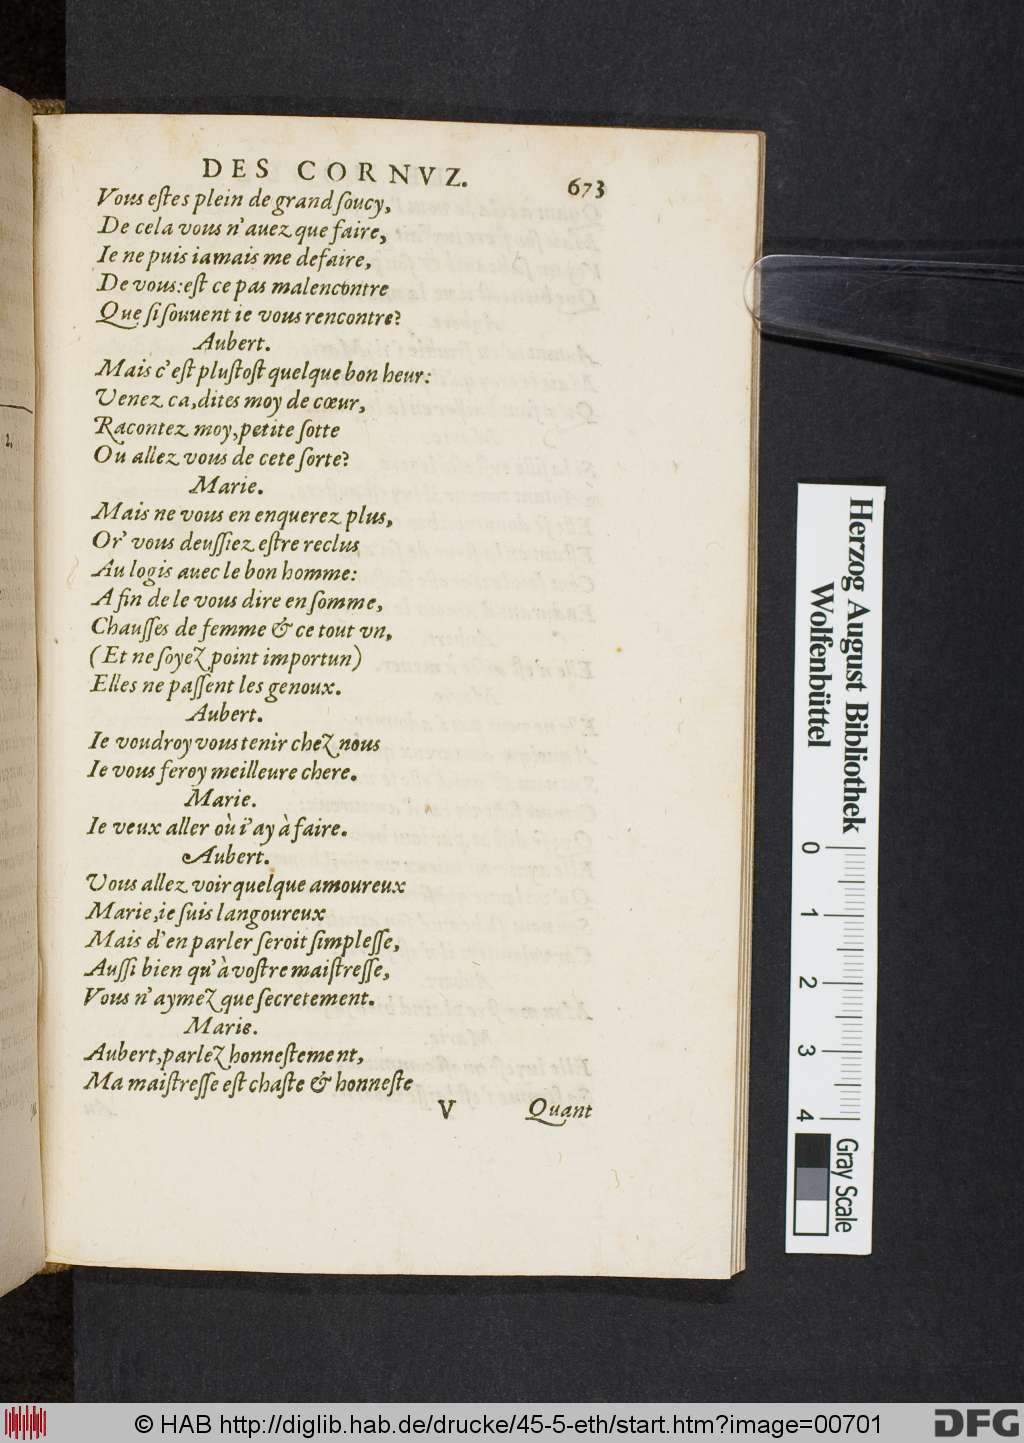 DES CORNVZ. 673
Vous estes plein de grand soucy,
De cela vous n'auez que faire,
Ie ne puis iamais me defaire,
De vous: est ce pas malencontre
Que si souuent ie vous rencontre?
Aubert.
Mais c'est plustost quelque bon heur:
Venez ca, dites moy de cœur,
Racontez moy, petite sotte
Ou allez vous de cete sorte?
Marie.
Mais ne vous en enquerez plus,
Or' vous deussiez estre reclus
Au logis auec le bon homme:
A fin de le vous dire en somme,
Chausses de femme & ce tout vn,
(Et ne soyez point importun)
Elles ne passent les genoux.
Aubert.
Ie voudroy vous tenir chez nous
Ie vous feroy meilleure chere.
Marie.
Ie veux aller où i'ay à faire.
Aubert.
Vous allez voir quelque amoureux
Marie, ie suis langoureux
Mais d'en parler seroit simplesse,
Aussi bien qu'à vostre maistresse,
Vous n'aymez que secretement.
Marie.
Aubert, parlez honnestement,
Ma maistresse est chaste & honneste
V Quant
Herzog August Bibliothek
Wolfenbüttel
0 1 2 3 4
Gray Scale
© HAB http://diglib.hab.de/drucke/45-5-eth/start.htm?image=00701
DFG